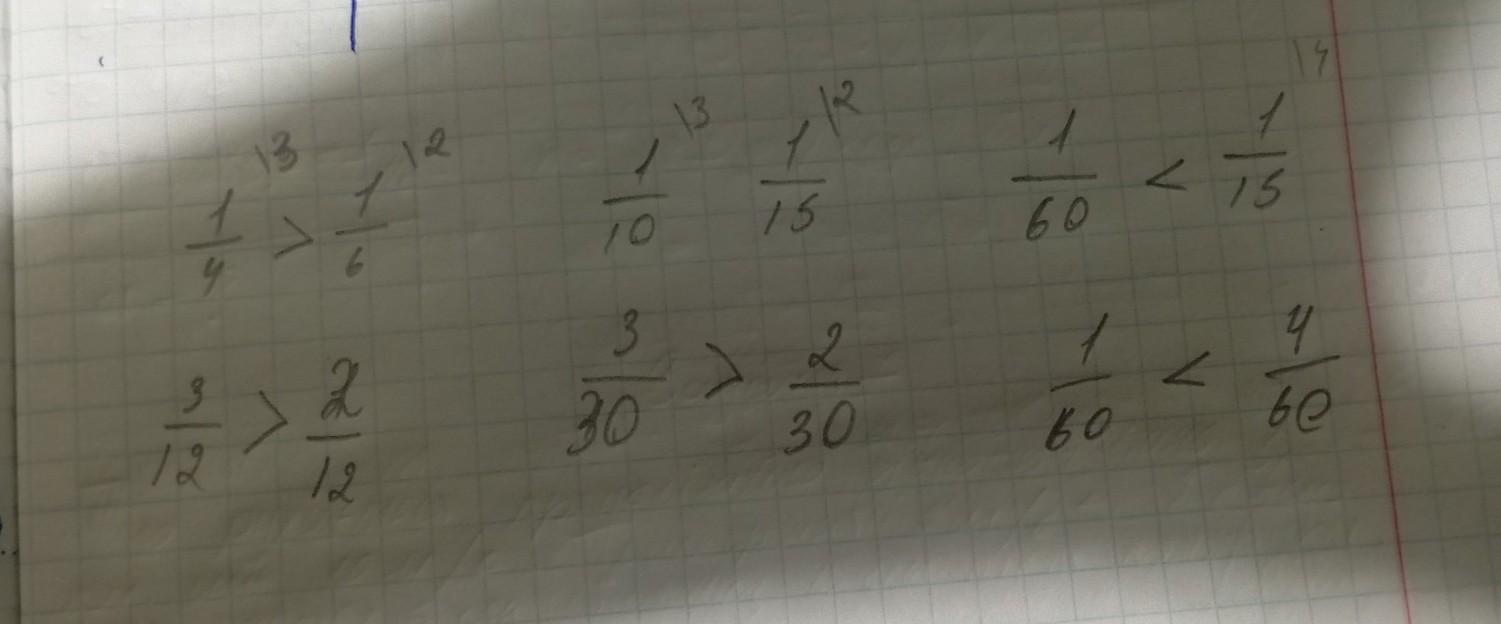 1/4 \3 > 1/6 \2
1/10 \3 1/15 \2
1/60 < 1/15 \4
3/12 > 2/12
3/30 > 2/30
1/60 < 4/60